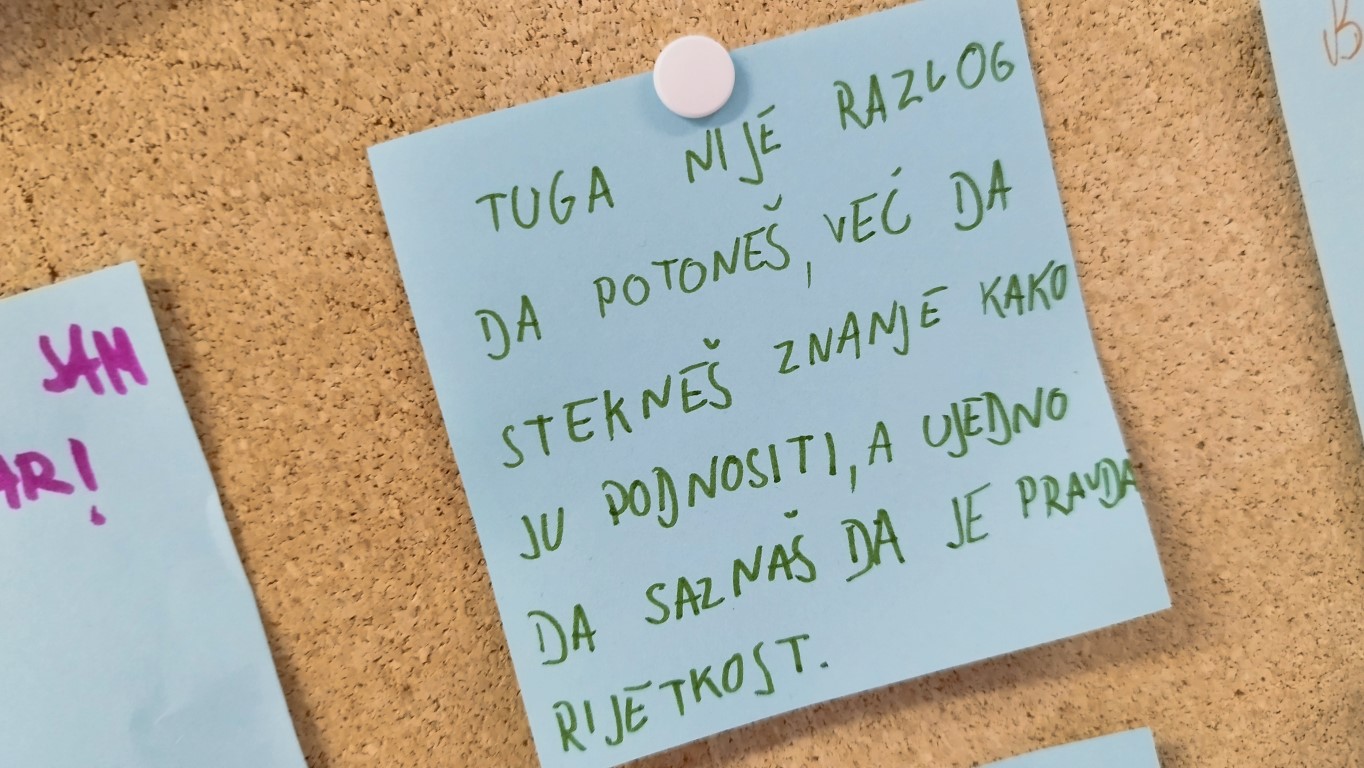 TUGA NIJE RAZLOG
DA POTONEŠ, VEĆ DA
STEKNEŠ ZNANJE KAKO
JU PODNOSITI, A UJEDNO
DA SAZNAŠ DA JE PRAVDA
RIJETKOST.
SAM
AR!
B